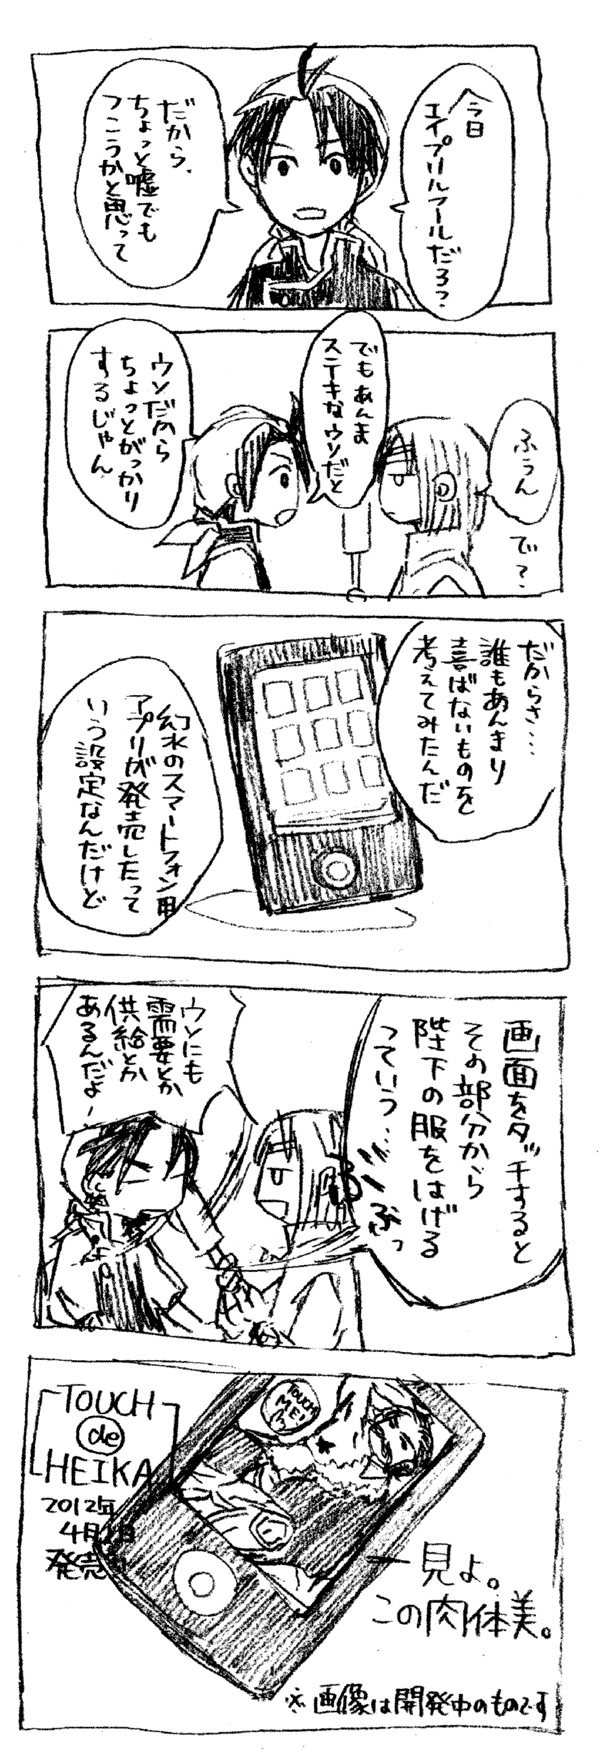 今日
エイプリルフールだろ?
だから、
ちょっと嘘でも
つこうかと思って
ふぅん
で?
でもあんま
ステキなウソだと
ウソだから
ちょっとがっかり
するじゃん
だからさ…
誰もあんまり
喜ばないものを
考えてみたんだ
幻水のスマートフォン用
アプリが発売したって
いう設定なんだけど
画面をタッチすると
その部分から
陛下の服をはげる
っていう…
ぶっ
ウソにも
需要とか
供給とか
あるんだよ
TOUCH
de
HEIKA
2012年
4月1日
発売
TOUCH
ME!
見よ。
この肉体美。
※画像は開発中のものです